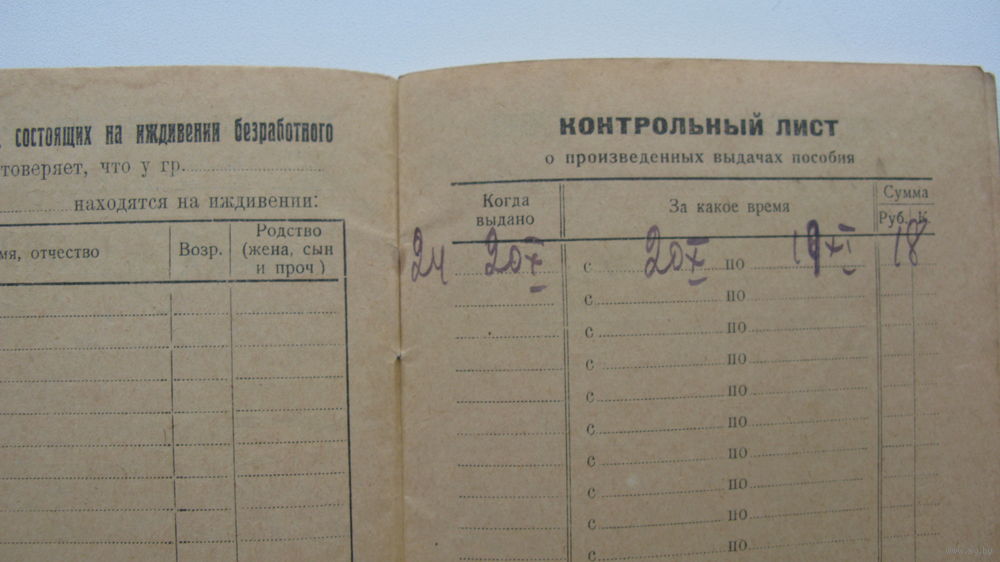 состоящих на иждивении безработного
товеряет, что у гр.
находятся на иждивении:
мя, отчество
Возр.
Родство
(жена, сын
и проч)
КОНТРОЛЬНЫЙ ЛИСТ
о произведенных выдачах пособия
Когда
выдано
За какое время
Сумма
Руб. К.
24 20 X с 20 X по 19 XI 18
с по
с по
с по
с по
с по
с по
с по
с по
с по